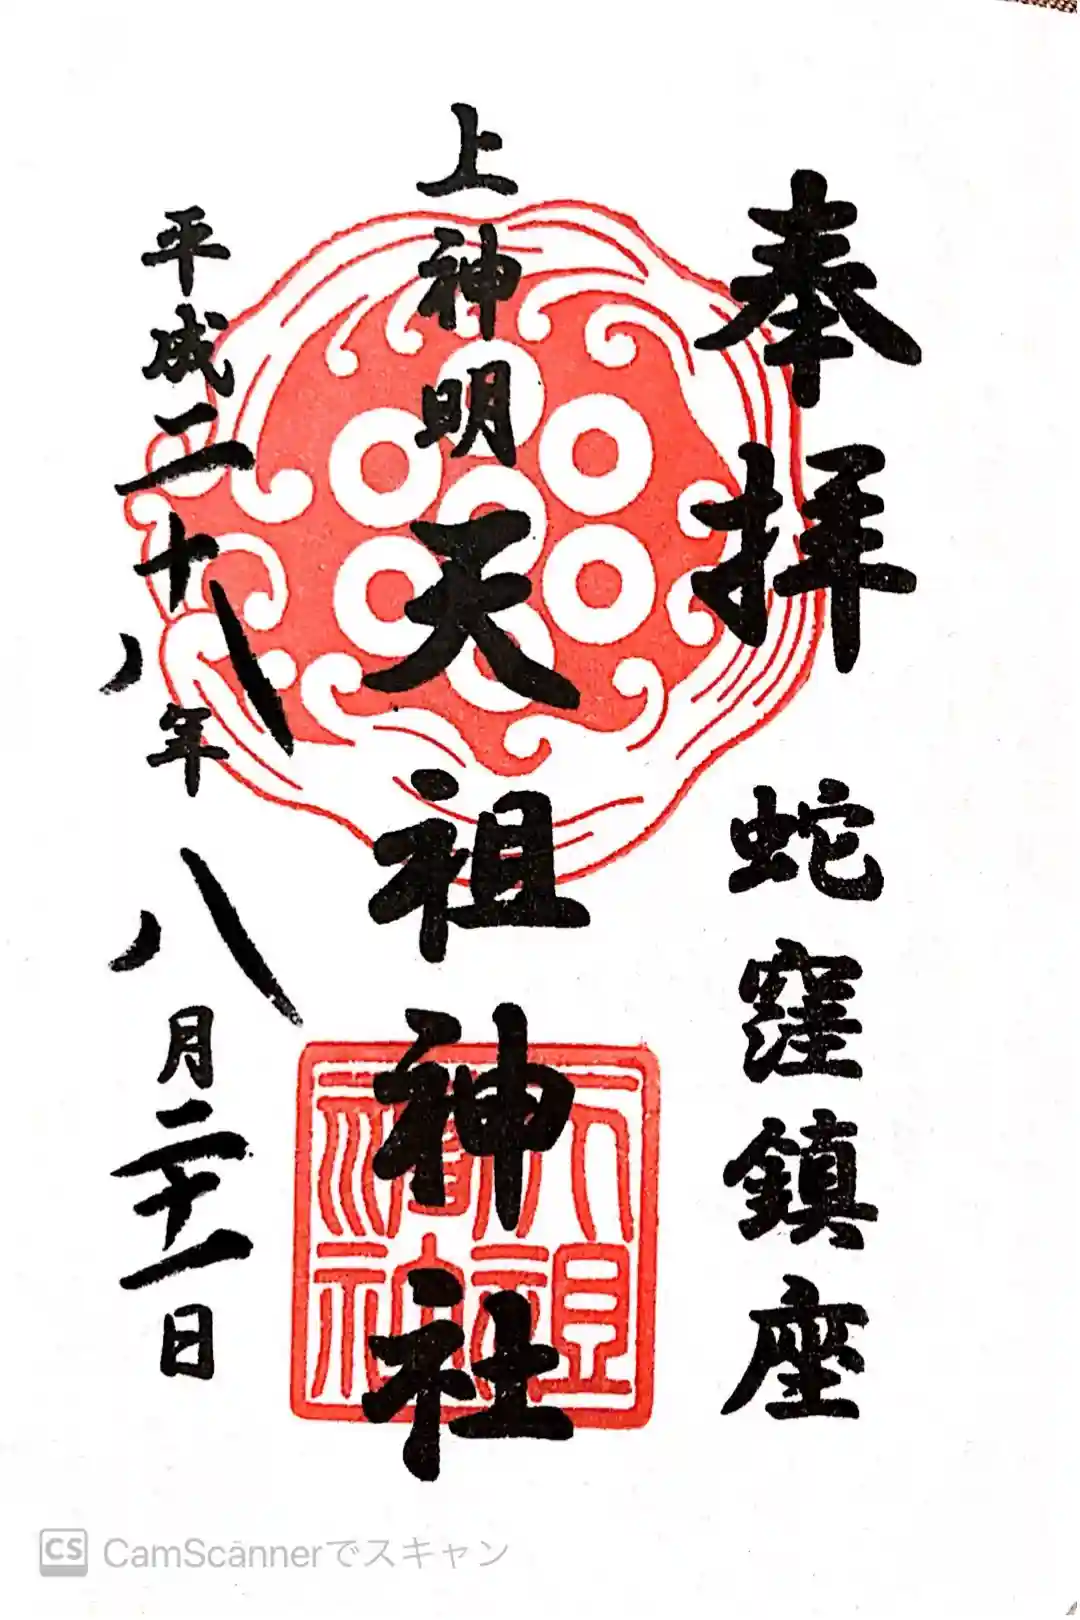 奉拝 蛇窪鎮座
上神明天祖神社
平成二十八年八月二十一日
天祖神社
CS CamScannerでスキャン